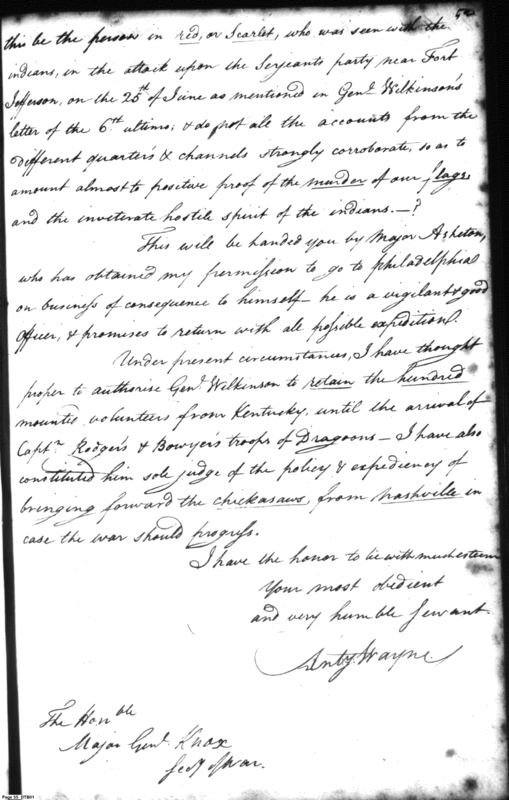 52
this be the person in red, or Scarlet, who was seen with the
indians, in the attack upon the Serjeants party near Fort
Jefferson, on the 25th of June as mentioned in Genl. Wilkinson's
letter of the 6th ultimo; & do not all the accounts from the
different quarters & channels strongly corroborate, so as to
amount almost to positive proof of the murder of our flags
and the inveterate hostile spirit of the indians.—?
This will be handed you by Major Asheton,
who has obtained my permission to go to Philadelphia
on business of consequence to himself he is a vigilant & good
Officer, & promises to return with all possible expedition.
Under present circumstances, I have thought
proper to authorise Genl. Wilkinson to retain the hundred
mounted volunteers from Kentucky, until the arrival of
Captn. Rodgers & Bowyer's troops of Dragoons— I have also
constituted him sole judge of the policy & expediency of
bringing forward the chickasaws, from Nashville in
case the war should progress.
I have the honor to be with much esteem
Your most obedient
and very humble Servant
Anty. Wayne
The Honble
Major Genl. Knox
Secy of War.
Page 55 DTB01